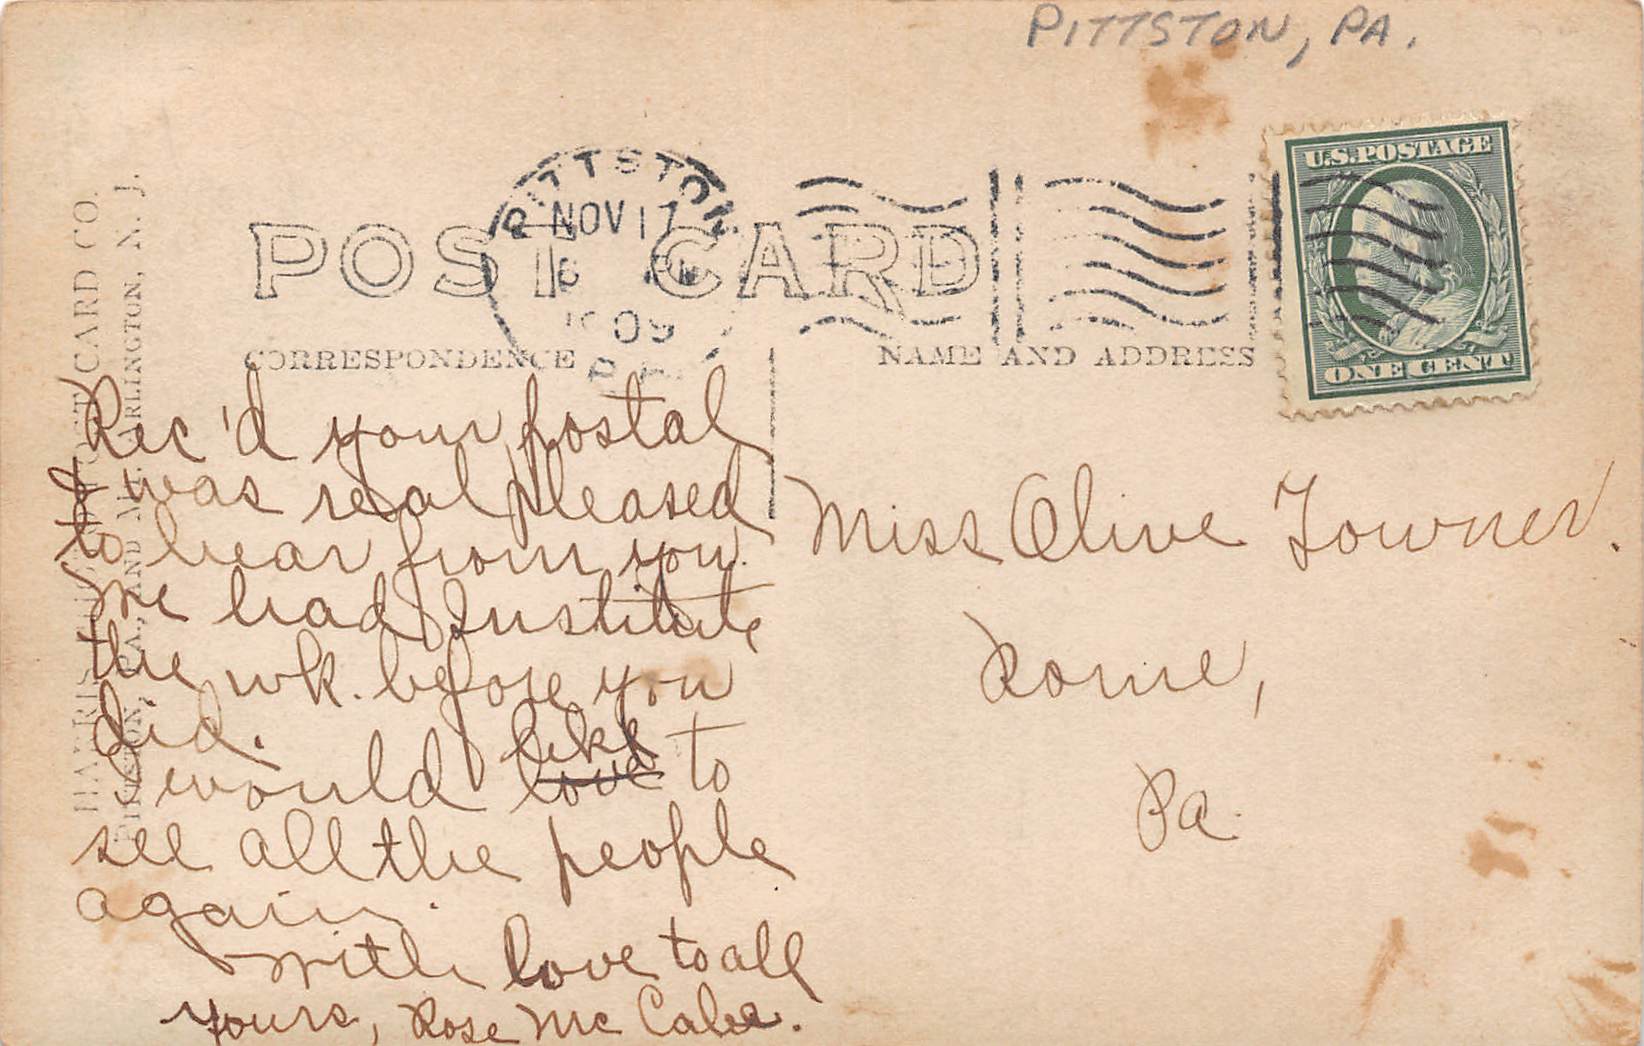 PITTSTON, PA.
U.S. POSTAGE
ONE CENT
PITTSTON
NOV 17
PM
1909
PA.
POST CARD
CORRESPONDENCE
NAME AND ADDRESS
POST CARD CO.
PITTSTON, PA., AND ARLINGTON, N. J.
Rec'd your postal
& was real pleased
to hear from you.
We had Institute
the wk. before you
did.
I would like love to
see all the people
again.
With love to all
Yours, Rose McCabe.
Miss Olive Towner.
Rome,
Pa.